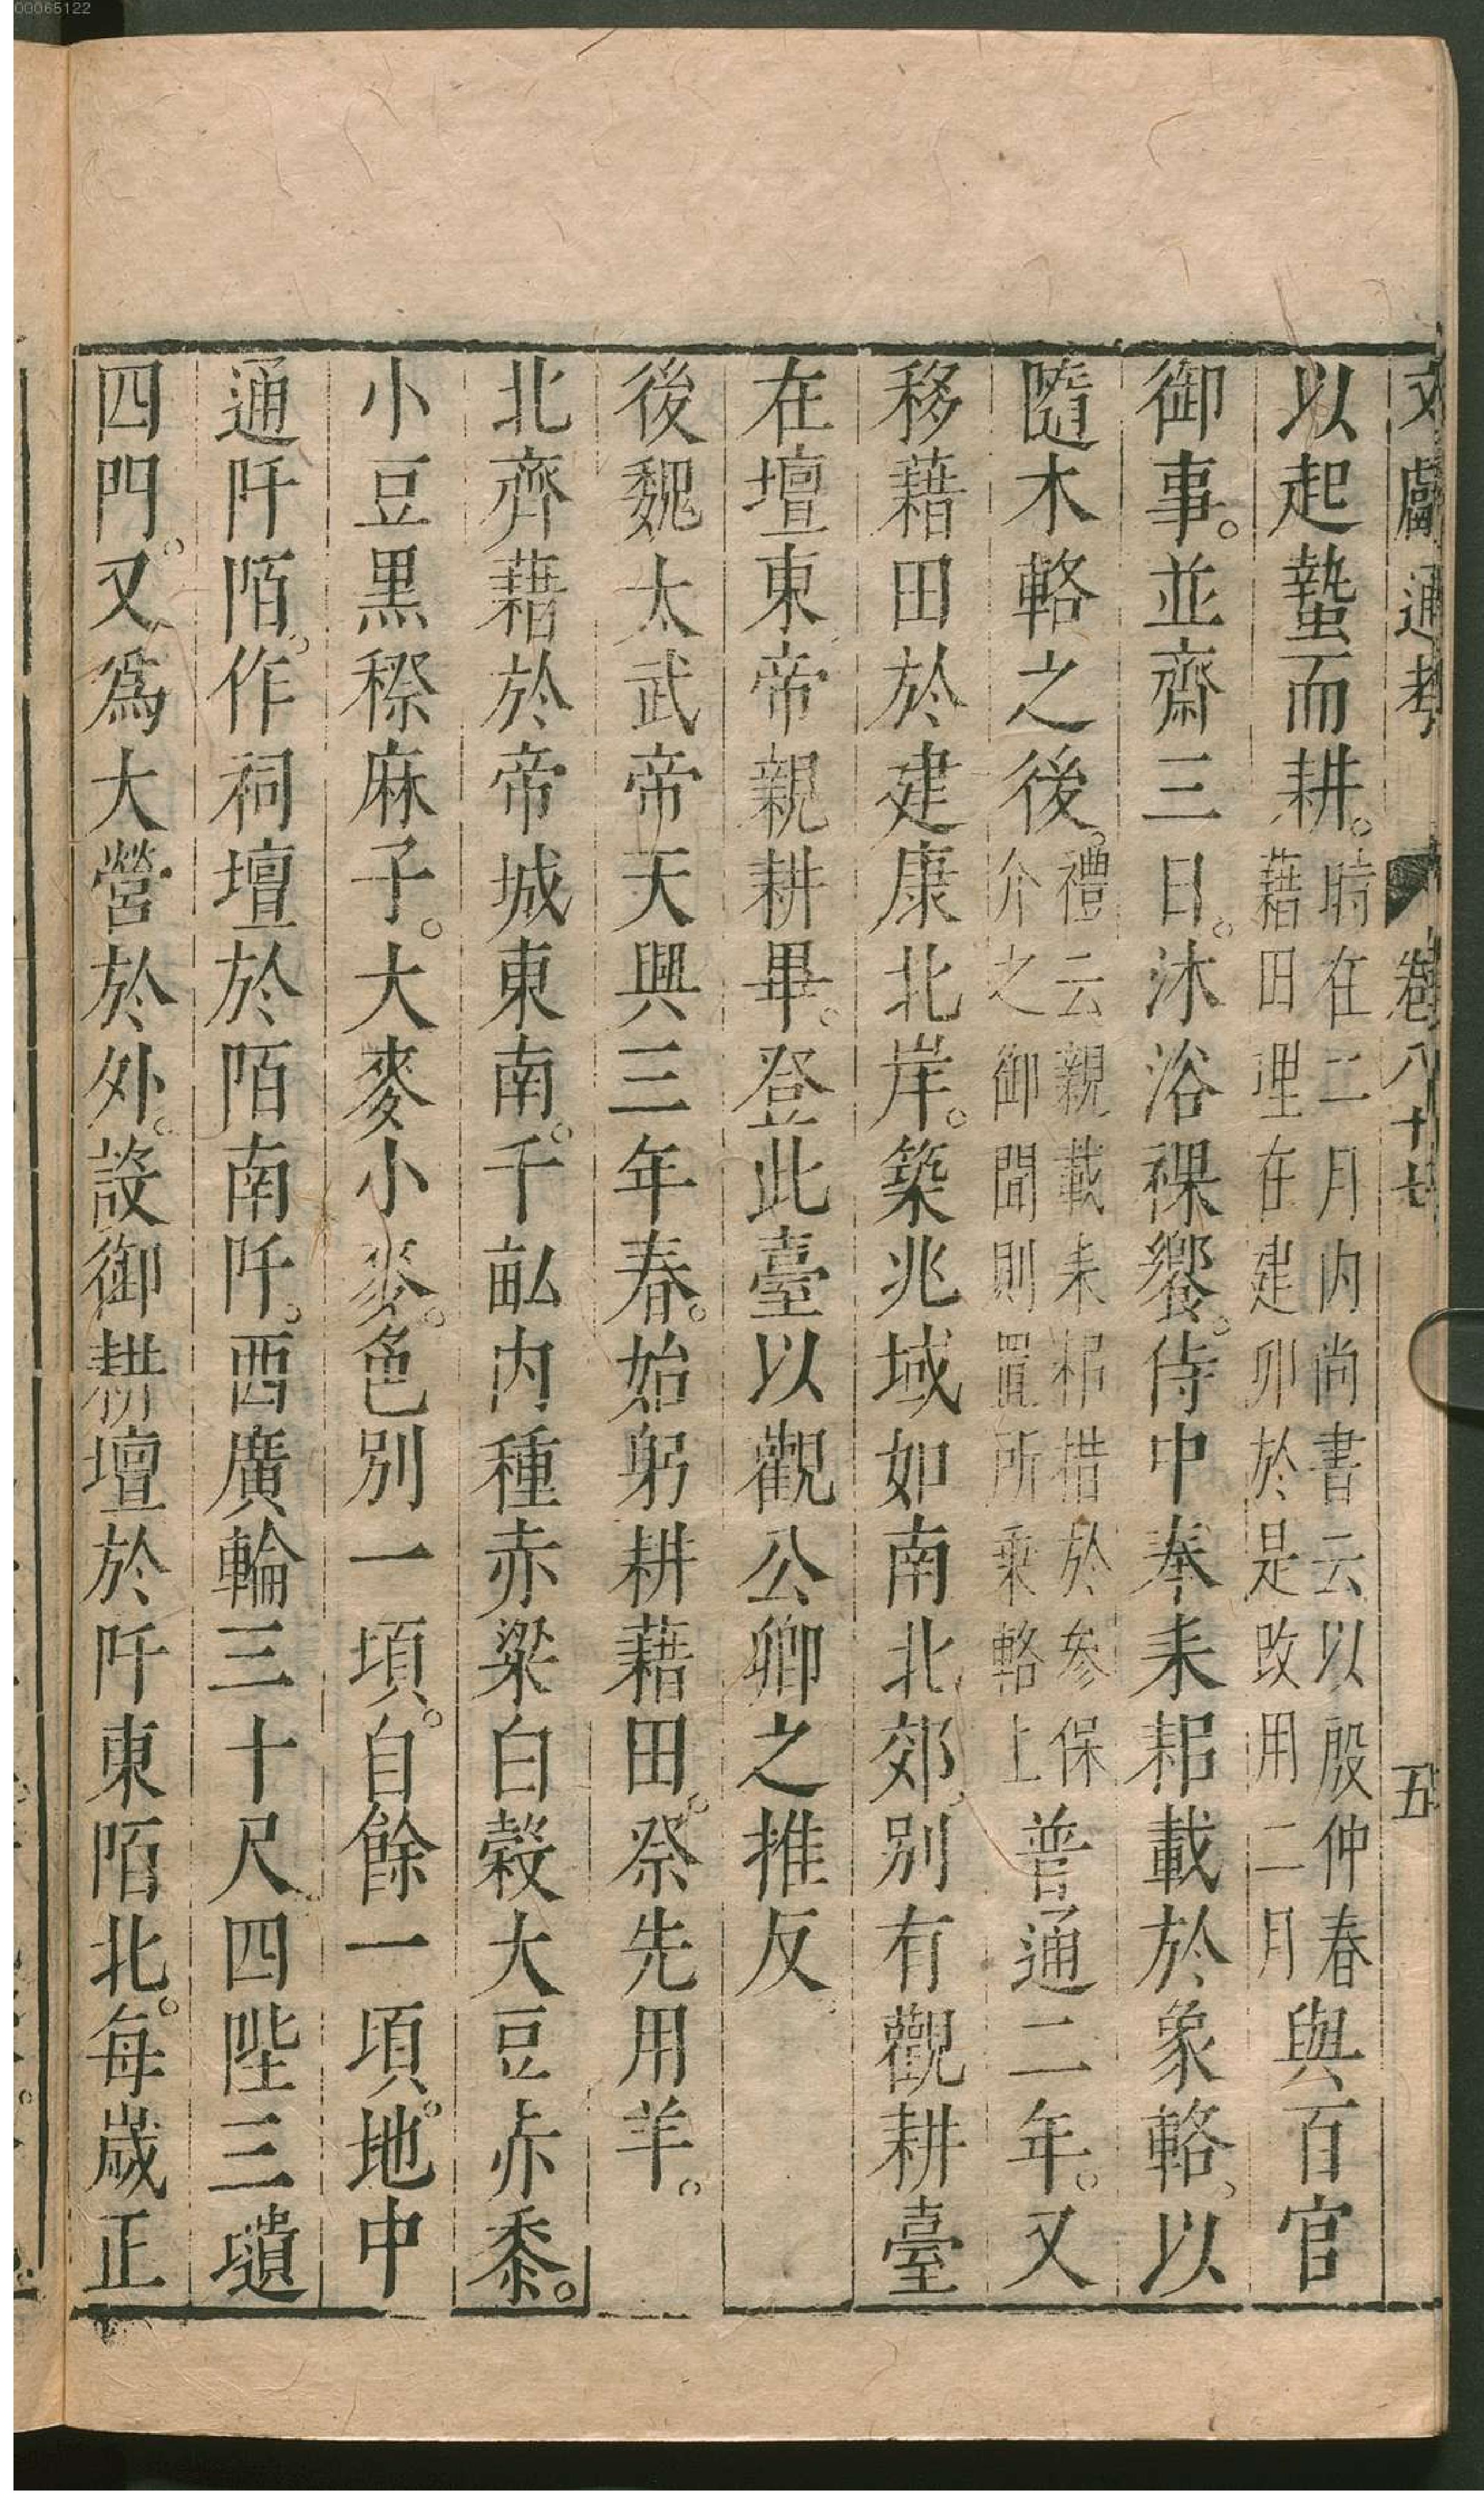 00065122
文獻通考 卷八十七 五
以起蟄而耕。時在二月内尚書云以殷仲春藉田理在建卯於是改用二月與百官
御事。並齋三日。沐浴祼饗。侍中奉耒耜載於象輅、以
隨木輅之後。禮云親載耒耜措於參保介之御間則置所乗輅上普通二年。又
移藉田於建康北岸。築兆域如南北郊、别有觀耕臺
在壇東帝親耕畢。登此臺以觀公卿之推反、
後魏太武帝天興三年春。始躬耕藉田。祭先用羊。
北齊藉於帝城東南。千畝内種赤粱白榖大豆赤黍。
小豆黒穄麻子。大麥小麥。色别一頃。自餘一頃。地中
通阡陌。作祠壇於陌南阡。西廣輪三十尺、四陛三壝
四門。又爲大營於外。設御耕壇於阡東陌北。每歲正